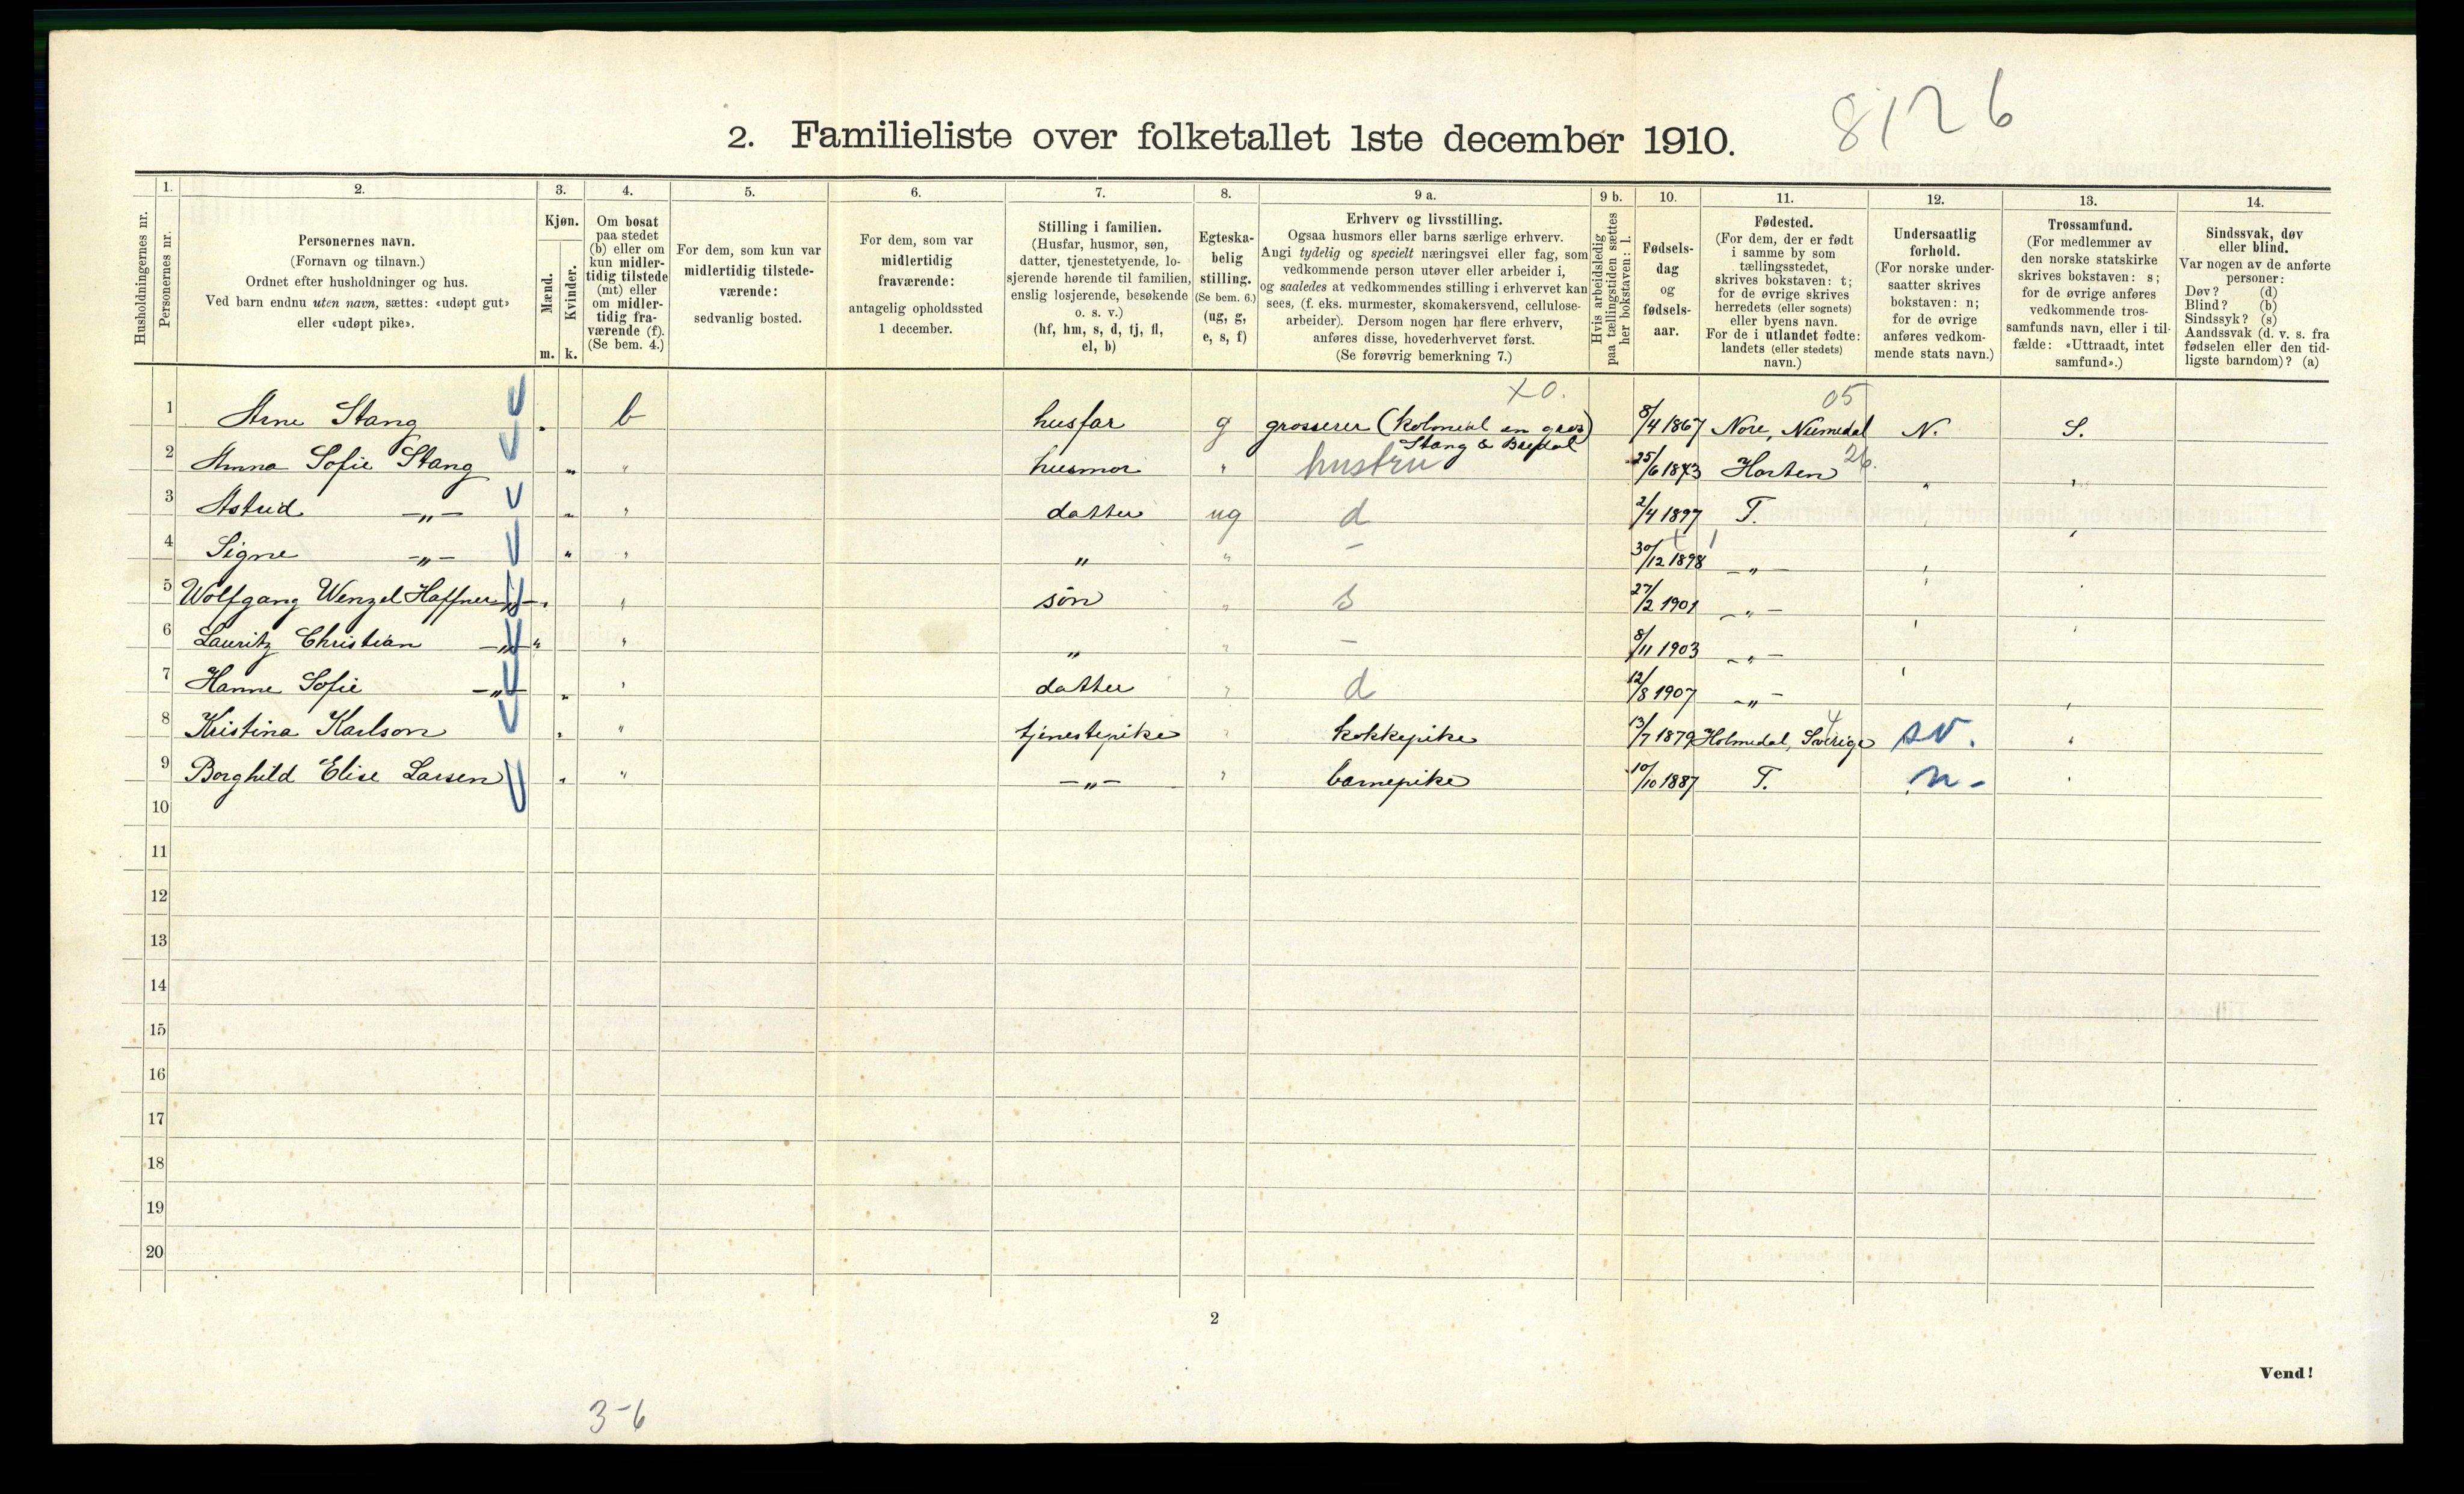 8126
2. Familieliste over folketallet 1ste december 1910.
Husholdningernes nr.
1. Personernes nr.
2. Personernes navn. (Fornavn og tilnavn.) Ordnet efter husholdninger og hus. Ved barn endnu uten navn, sættes: «udøpt gut» eller «udøpt pike».
3. Kjøn. Mænd. m. Kvinder. k.
4. Om bosat paa stedet (b) eller om kun midlertidig tilstede (mt) eller om midlertidig fraværende (f). (Se bem. 4.)
5. For dem, som kun var midlertidig tilstedeværende: sedvanlig bosted.
6. For dem, som var midlertidig fraværende: antagelig opholdssted 1 december.
7. Stilling i familien. (Husfar, husmor, søn, datter, tjenestetyende, losjerende hørende til familien, enslig losjerende, besøkende o. s. v.) (hf, hm, s, d, tj, fl, el, b)
8. Egteskabelig stilling. (Se bem. 6.) (ug, g, e, s, f)
9 a. Erhverv og livsstilling. Ogsaa husmors eller barns særlige erhverv. Angi tydelig og specielt næringsvei eller fag, som vedkommende person utøver eller arbeider i, og saaledes at vedkommendes stilling i erhvervet kan sees, (f. eks. murmester, skomakersvend, cellulosearbeider). Dersom nogen har flere erhverv, anføres disse, hovederhvervet først. (Se forøvrig bemerkning 7.)
9 b. Hvis arbeidsledig paa tællingstiden sættes her bokstaven: l.
10. Fødselsdag og fødselsaar.
11. Fødested. (For dem, der er født i samme by som tællingsstedet, skrives bokstaven: t; for de øvrige skrives herredets (eller sognets) eller byens navn. For de i utlandet fødte: landets (eller stedets) navn.)
12. Undersaatlig forhold. (For norske undersaatter skrives bokstaven: n; for de øvrige anføres vedkommende stats navn.)
13. Trossamfund. (For medlemmer av den norske statskirke skrives bokstaven: s; for de øvrige anføres vedkommende trossamfunds navn, eller i tilfælde: «Uttraadt, intet samfund».)
14. Sindssvak, døv eller blind. Var nogen av de anførte personer: Døv? (d) Blind? (b) Sindssyk? (s) Aandssvak (d. v. s. fra fødselen eller den tidligste barndom)? (a)
x0. 05
1 Arne Stang b husfar g grosserer (kolonial en gros) 8/4 1867 Nore, Numedal N. S.
Stang &
2 Anna Sofie Stang " husmor " hustru 25/6 1873 Horten 26. " "
3 Astrid —"— " datter ug d 2/4 1897 T. " "
4 Signe —"— " " " — 30/12 1898 —"— " "
5 Wolfgang Wenzel Haffner —"— " søn " s 27/2 1901 —"— " "
6 Lauritz Christian —"— " " " — 8/11 1903 —"— " "
7 Hanne Sofie —"— " datter " d 12/8 1907 —"— " "
8 Kristina Karlson " tjenestepike " kokkepike 13/7 1879 Holmedal, Sverige sv. "
9 Borghild Elise Larsen " —"— " barnepike 10/10 1887 T. n- "
10
11
12
13
14
15
16
17
18
19
20
2
Vend!
3-6